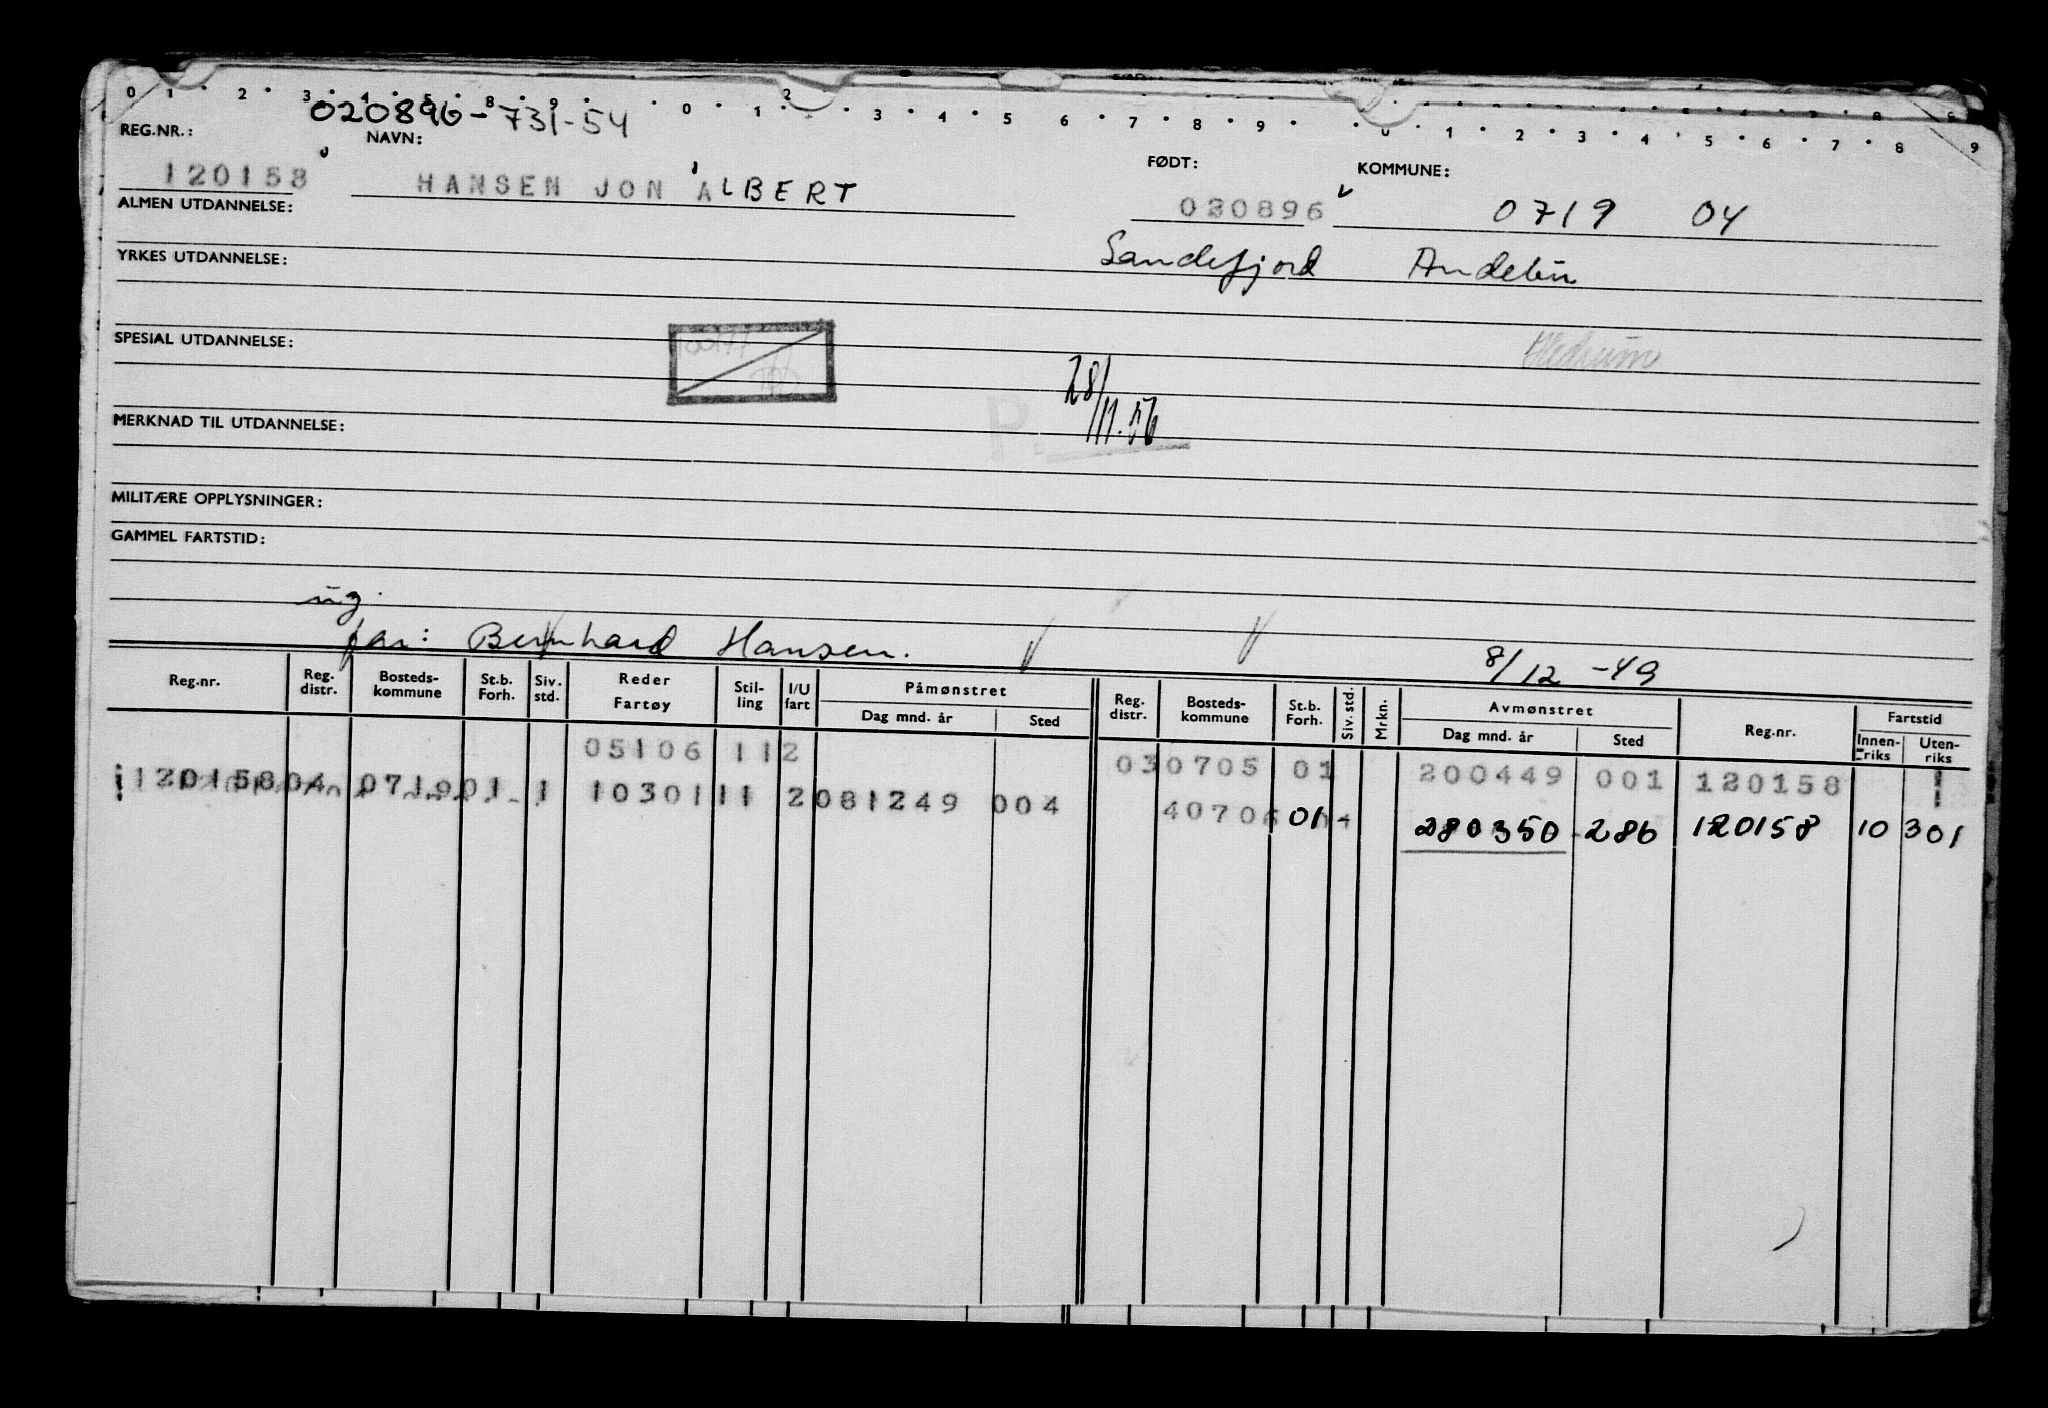 0 1 2 3 4 5 8 9 0 1 2 3 4 5 6 7 8 9 0 1 2 3 4 5 6 7 8 9
020896-731-54
REG.NR.: NAVN: FØDT: KOMMUNE:
120158 HANSEN JON ALBERT 020896 0719 04
ALMEN UTDANNELSE:
Sandefjord Andebu
YRKES UTDANNELSE:
SPESIAL UTDANNELSE: Hedrum
28/11.56
P.
MERKNAD TIL UTDANNELSE:
MILITÆRE OPPLYSNINGER:
GAMMEL FARTSTID:
ug.
far: Bernhard Hansen. 8/12 -49
Reg.nr. Reg. distr. Bosteds-kommune St.b. Forh. Siv. std. Reder Fartøy Stil-ling I/U fart Påmønstret Dag mnd. år Sted Reg. distr. Bosteds-kommune St.b. Forh. Siv. std. Mrkn. Avmønstret Dag mnd. år Sted Reg.nr. Fartstid Innen-riks Uten-riks
05106 11 2 03 0705 01 200449 001 120158
120158 04 0719 01 1 10301 11 2 081249 004 4070 01 280350 286 120158 10 301